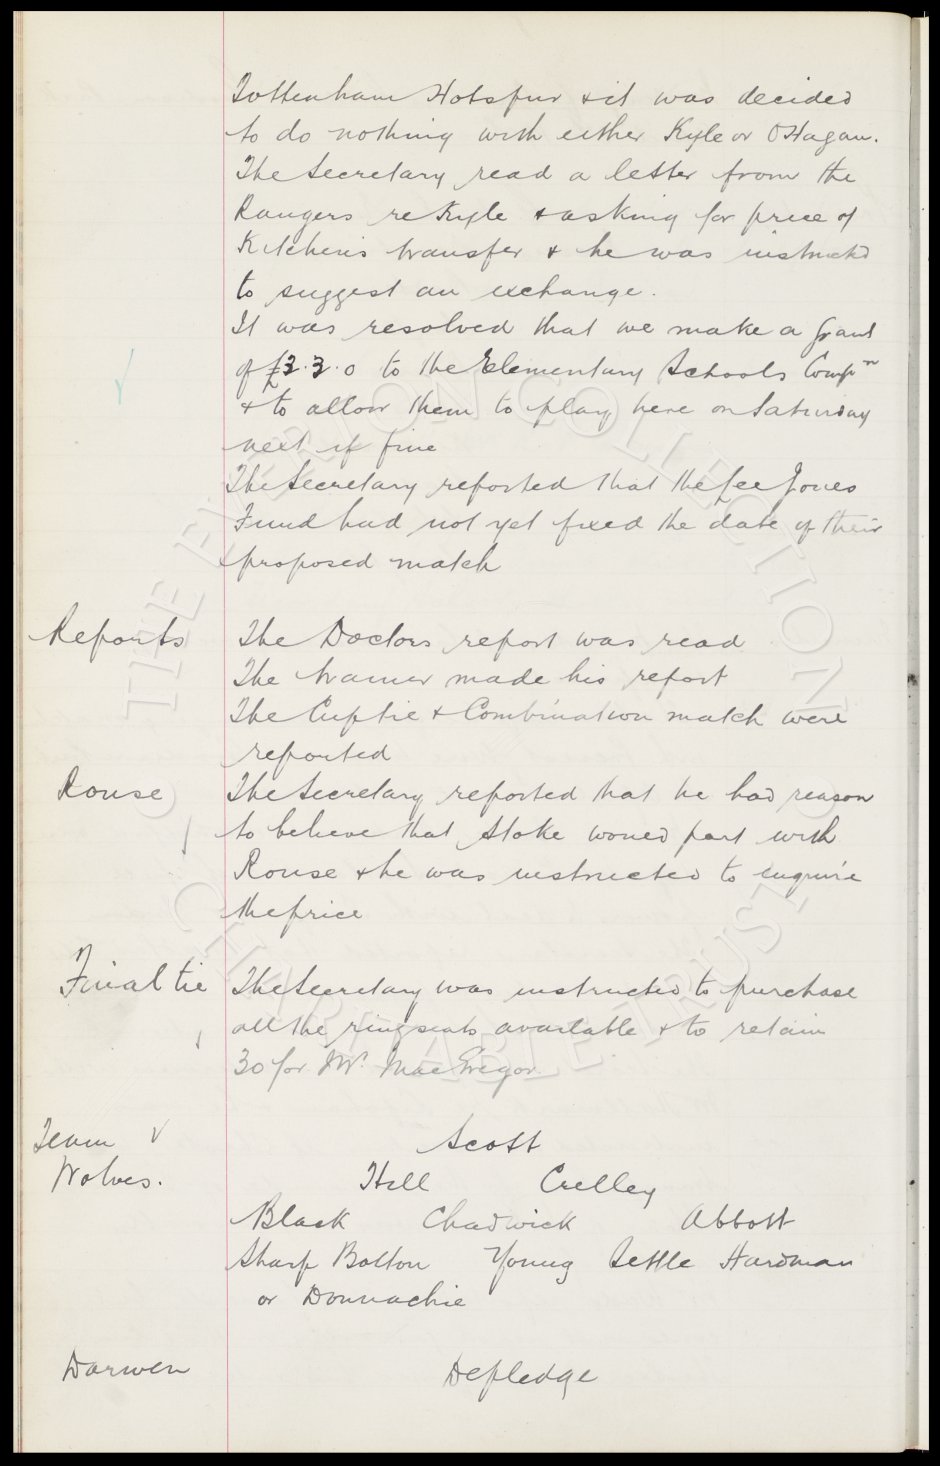 Tottenham Hotspur & it was decided
to do nothing with either Kyle or O'Hagan.
The Secretary read a letter from the
Rangers re Kyle & asking for price of
Kitchens transfer & he was instructed
to suggest an exchange.
It was resolved that we make a Grant
of £3.3.0 to the Elementary Schools Compn
& to allow them to play here on Saturday
next if fine
The Secretary reported that the Lee Jones
Fund had not yet fixed the date of their
proposed match
Reports The Doctors report was read
The trainer made his report
The Cup tie & Combination match were
reported
Rouse The Secretary reported that he had reason
to believe that Stoke would part with
Rouse & he was instructed to enquire
the price
Final tie The Secretary was instructed to purchase
all the ring seats available & to retain
30 for Mr. MacGregor.
Team V Scott
Wolves. Hill Crelley
Black Chadwick Abbott
Sharp Bolton Young Settle Hardman
or Donnachie
Darwen Depledge
THE EVERTON COLLECTION
CHARITABLE TRUST